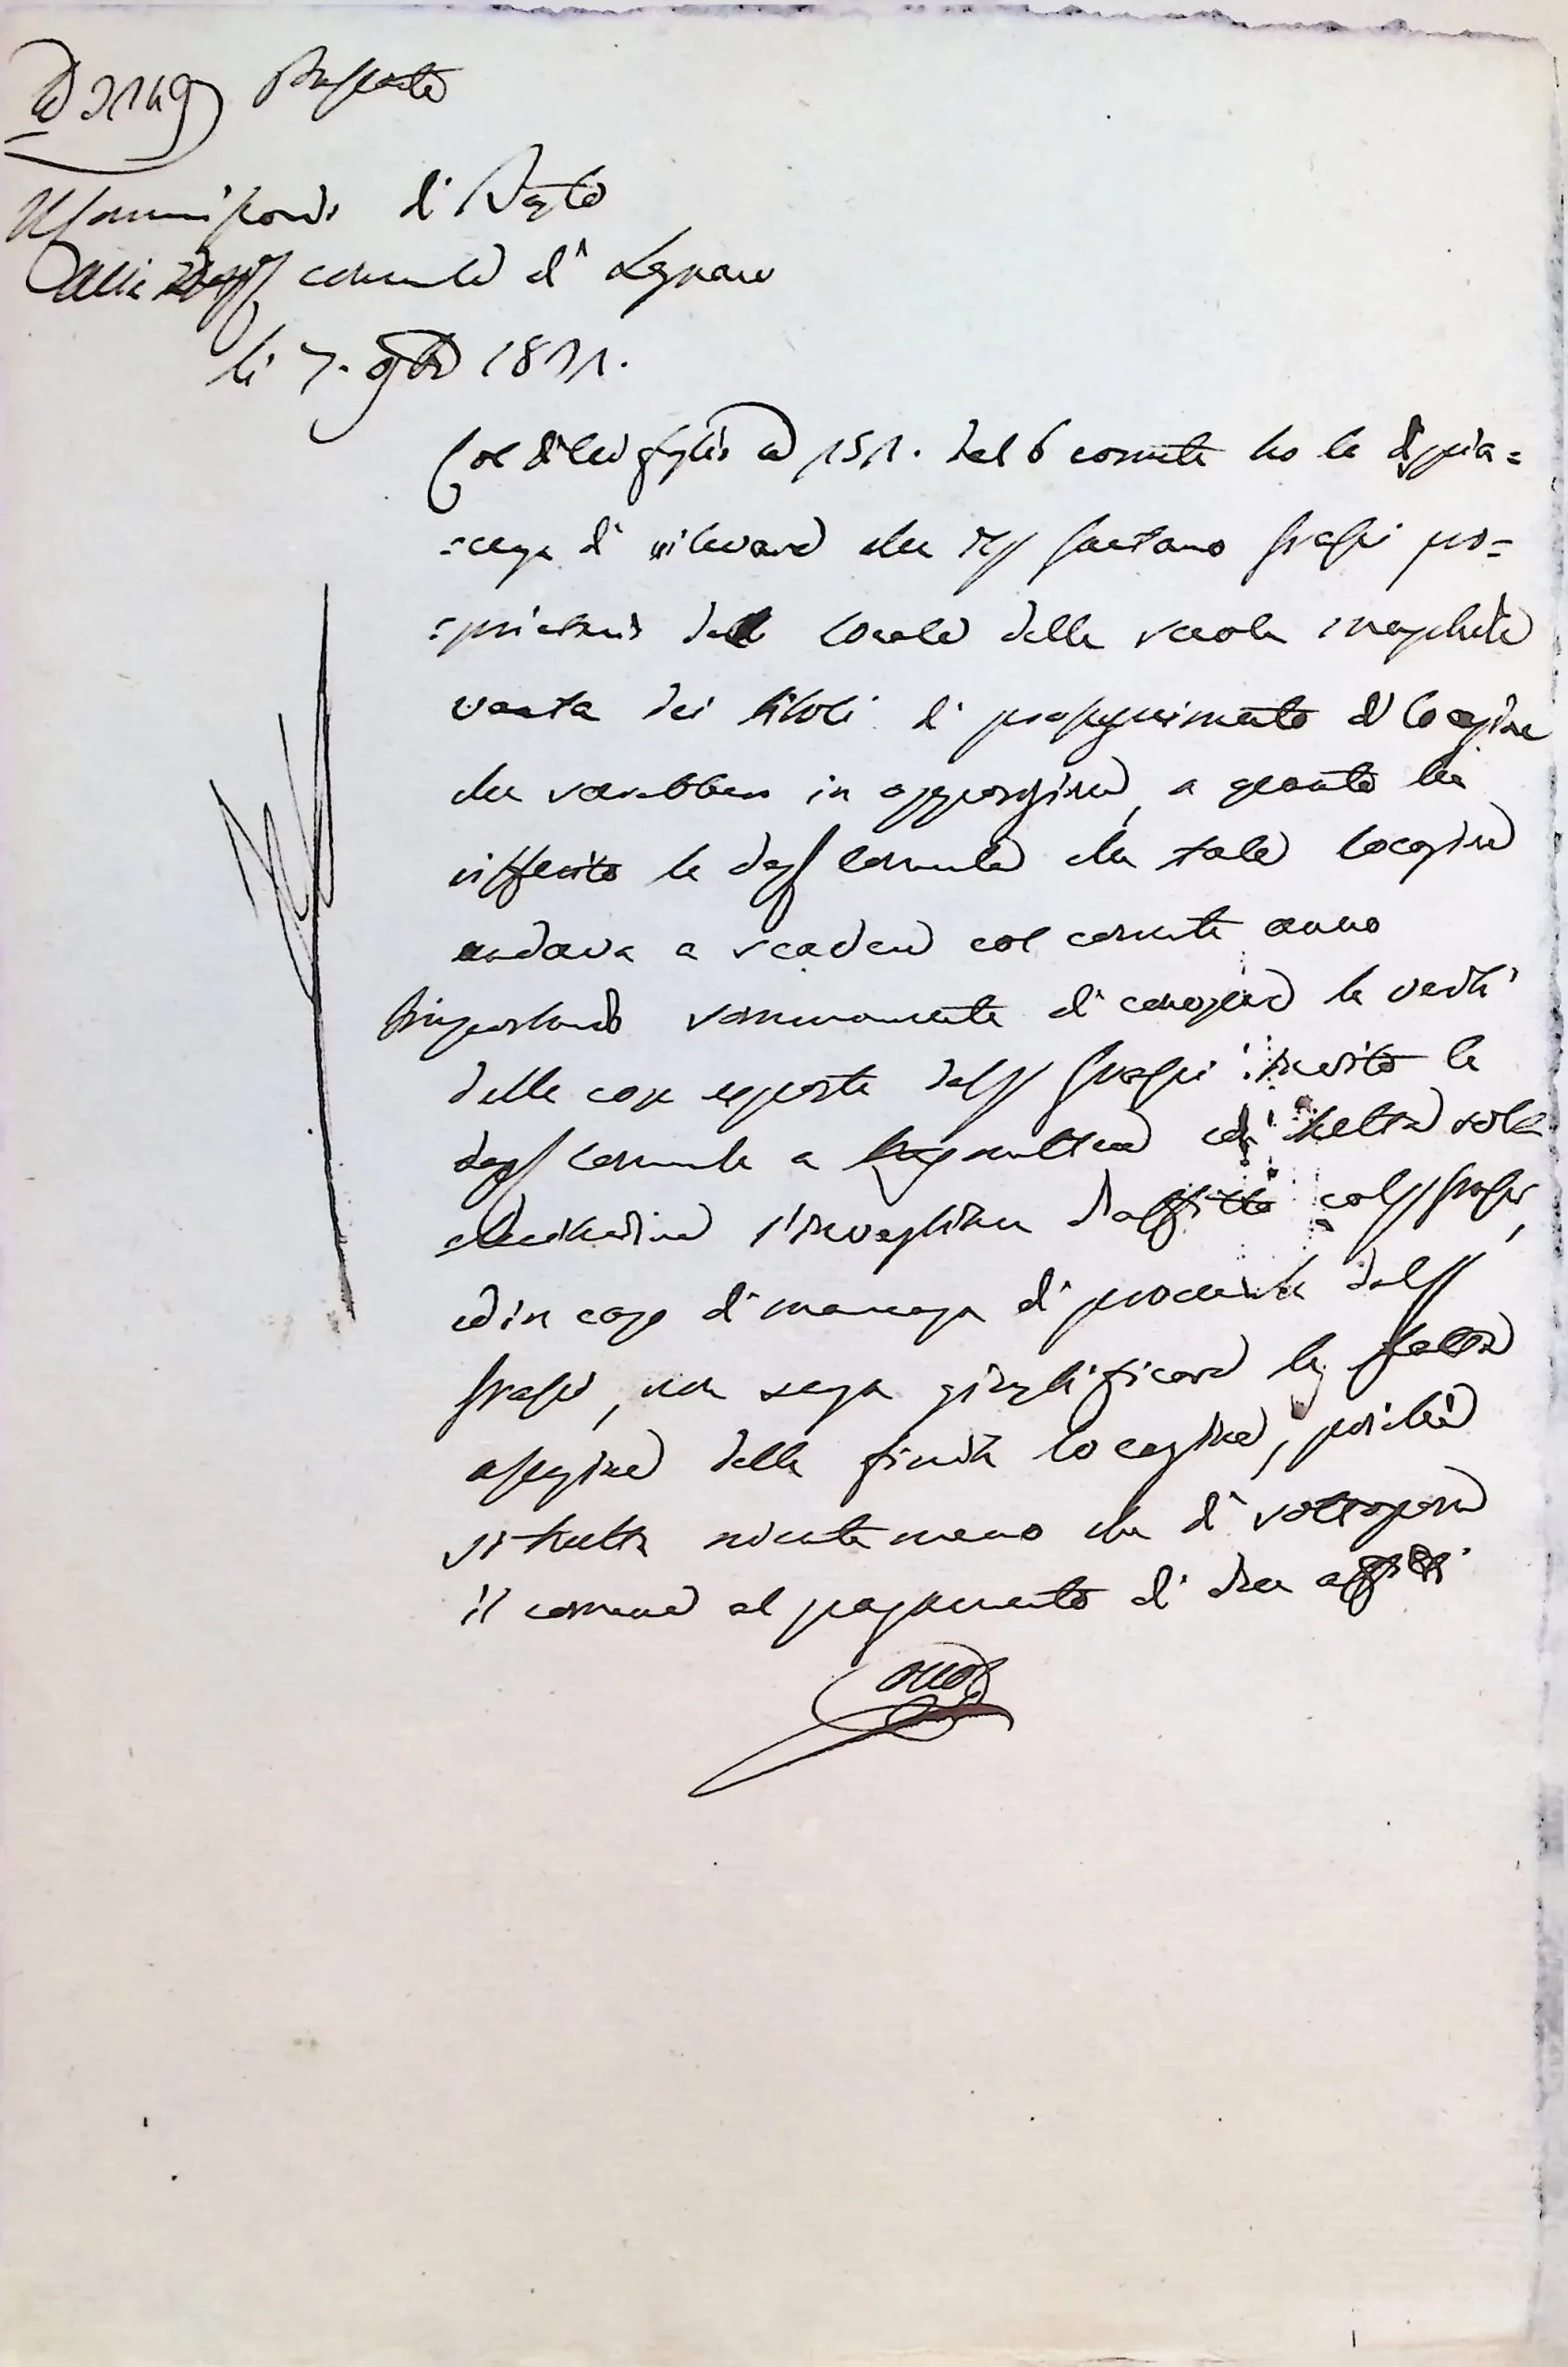 N 3149 Pressante
Il Commissario di
Alla Dep comunale di Legnaro
li 7. 9bre 1831.
Col di lei foglio N 151. del 6 corrente ho la dispia=
=cenza di rilevare che il Sig Gaetano Grassi pro=
=prietario del locale della scuola
vanta dei titoli di proseguimento di locazione
che sarebbero in opposizione, a quanto ha
riferito la dep Comunale che tale locazione
andava a scadere col corrente anno
Importando sommamente di conoscere la verità
delle cose esposte dal Sig Grassi invito la
dep Comunale a ed
l'investitura d'affitto col Sig Grassi,
ed in caso di mancanza di procedura dal Sig
Grassi, non sa giustificare la fatta
asserzione della finita locazione, poichè
si tratta niente meno che di sottoporre
il comune al pagamento di due affitti